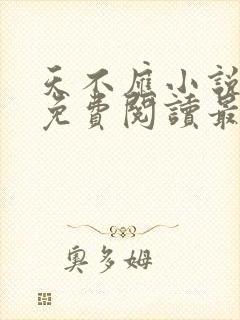 天不应小説
免費閱讀最
奧多姆